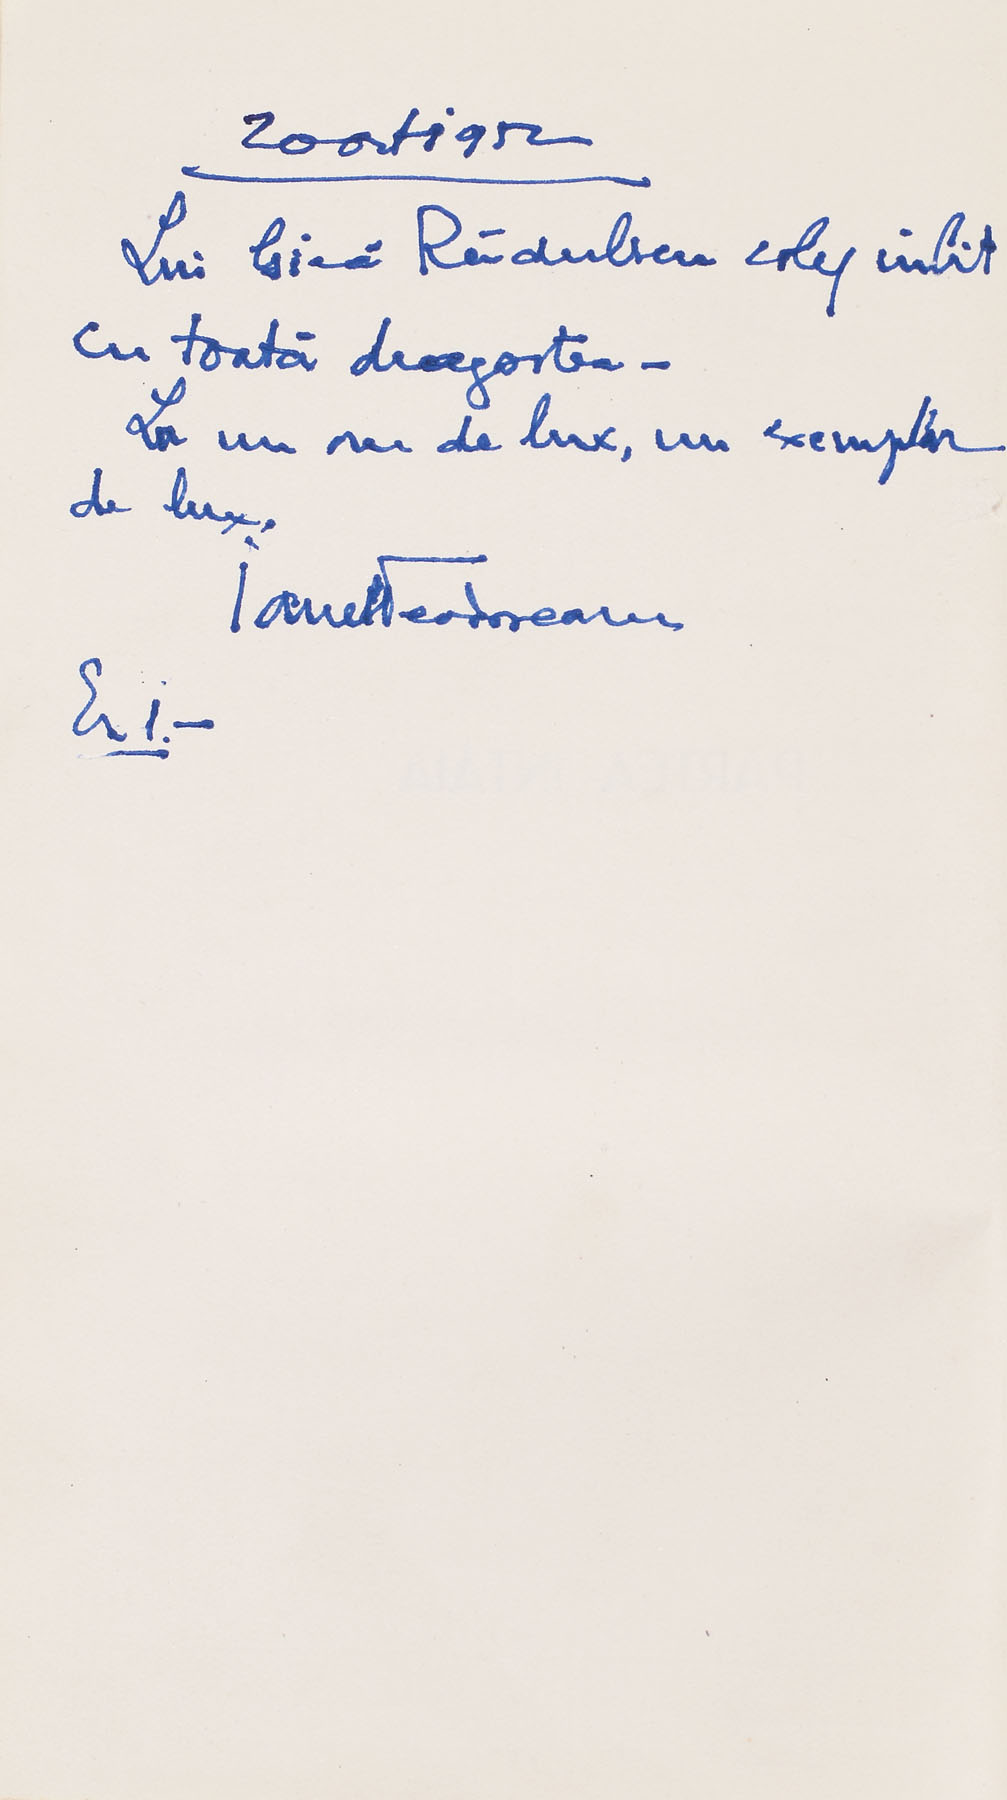 20 oct 1952
Lui Gică Rădulescu coleg iubit
cu toată dragostea —
La un om de lux, un exemplar
de lux.
Ionel Teodoreanu
Ex 1.—
PARTEA INTAIA